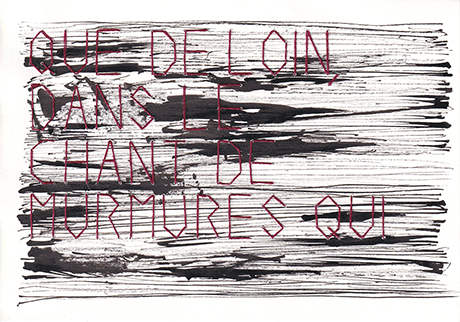 QUE DE LOIN,
DANS LE
CHANT DE
MURMURES QUI